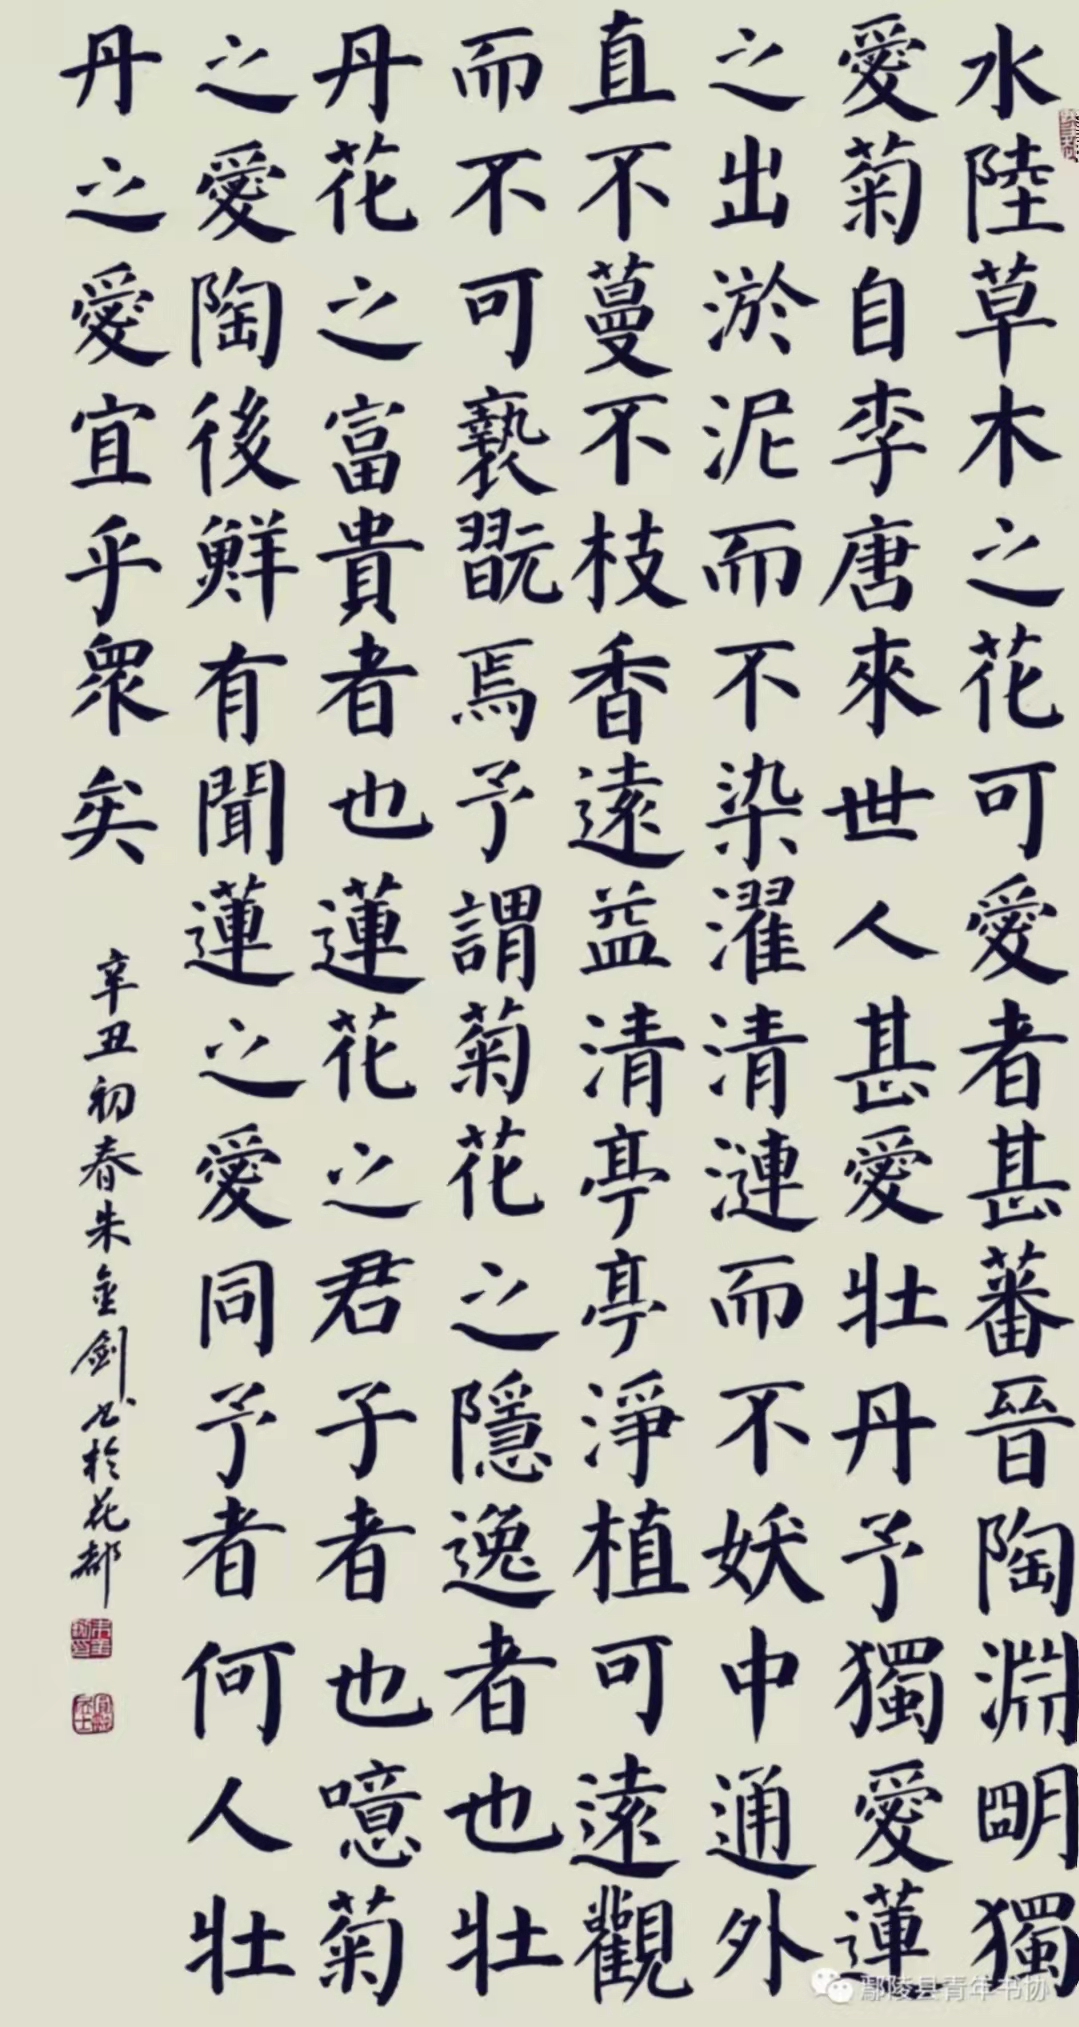 水陸草木之花可愛者甚蕃晉陶淵明獨
愛菊自李唐來世人甚愛壯丹予獨愛蓮
之出淤泥而不染濯清漣而不妖中通外
直不蔓不枝香遠益清亭亭淨植可遠觀
而不可褻翫焉予謂菊花之隱逸者也壯
丹花之富貴者也蓮花之君子者也噫菊
之愛陶後鮮有聞蓮之愛同予者何人壯
丹之愛宜乎眾矣
辛丑初春朱金劍书於花都
鄢陵县青年书协